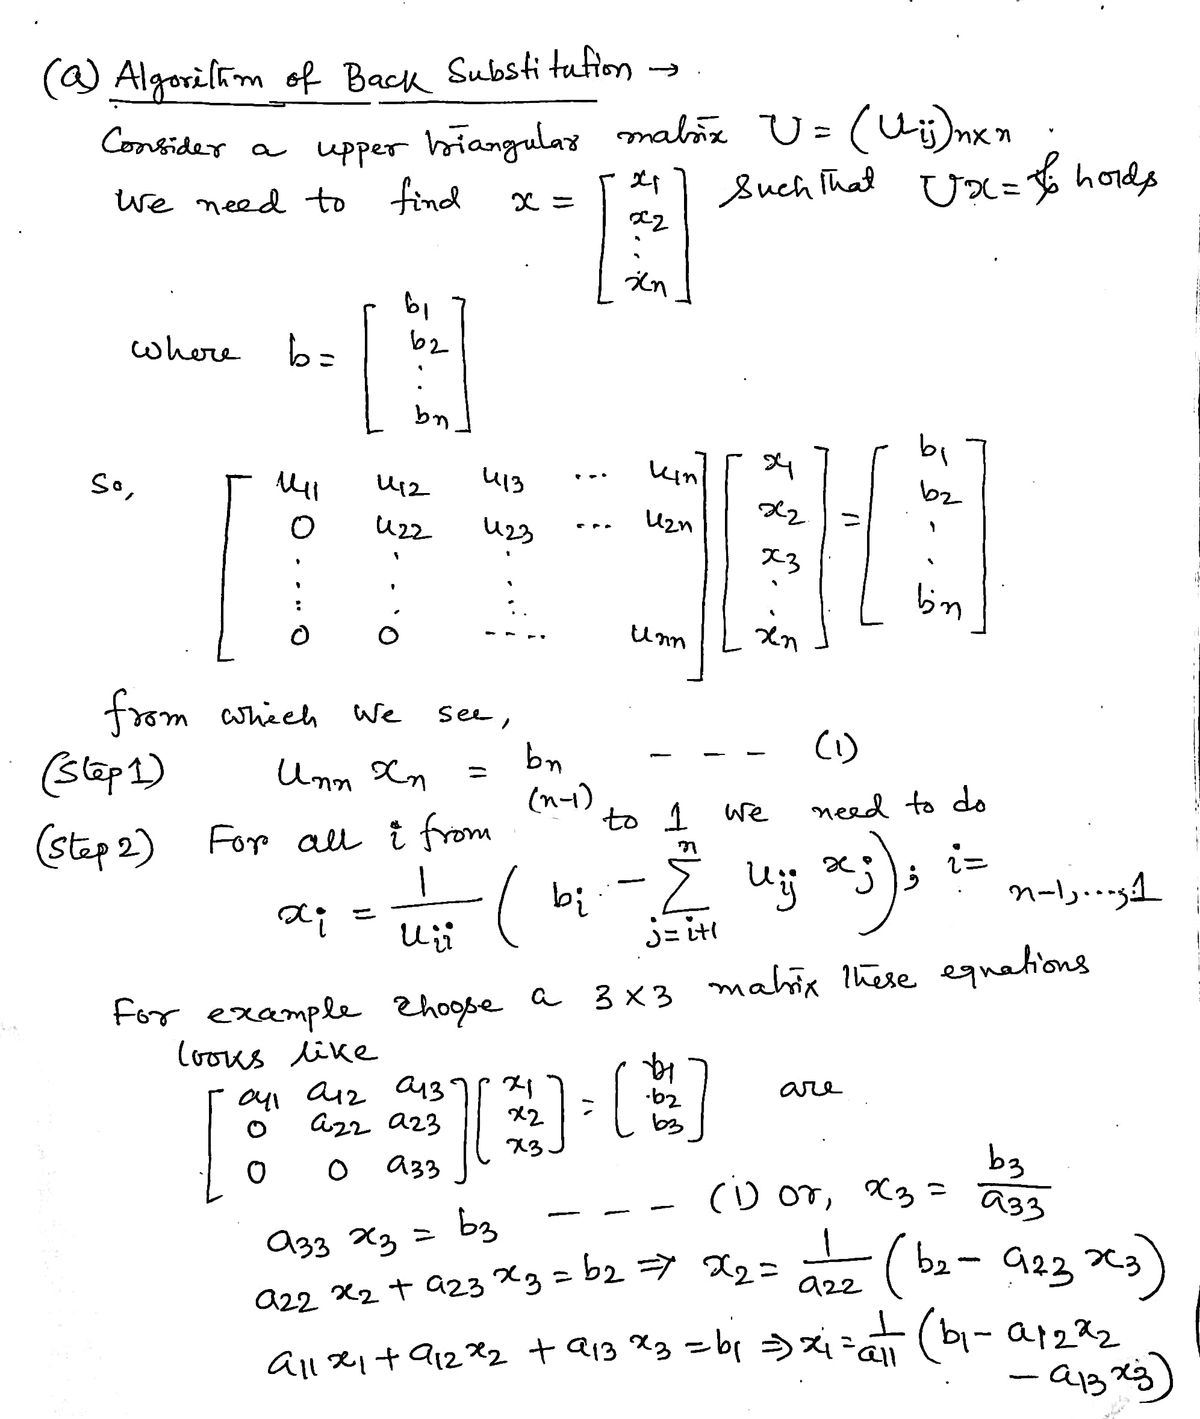 (a) Algorithm of Back Substitution →
Consider a upper triangular matrix U = (Uij)n×n
We need to find x = [x1 x2 : xn] such that Ux = b holds
where b = [b1 b2 : bn]
So, [u11 u12 u13 ... u1n] [x1] [b1]
[0 u22 u23 ... u2n] [x2] = [b2]
[: : :] [x3] [:]
[0 0 ---- unn] [xn] [bn]
from which we see,
(Step 1) Unn xn = bn - - - (1)
(Step 2) For all i from (n-1) to 1 we need to do
xi = 1/uii ( bi - Σ_{j=i+1}^{n} uij xj ); i = n-1,...,1
For example choose a 3×3 matrix these equations
looks like
[a11 a12 a13] [x1] [b1]
[0 a22 a23] [x2] = [b2] are
[0 0 a33] [x3] [b3]
a33 x3 = b3 - - - (i) or, x3 = b3/a33
a22 x2 + a23 x3 = b2 ⇒ x2 = 1/a22 ( b2 - a23 x3 )
a11 x1 + a12 x2 + a13 x3 = b1 ⇒ x1 = 1/a11 ( b1 - a12 x2
- a13 x3 )